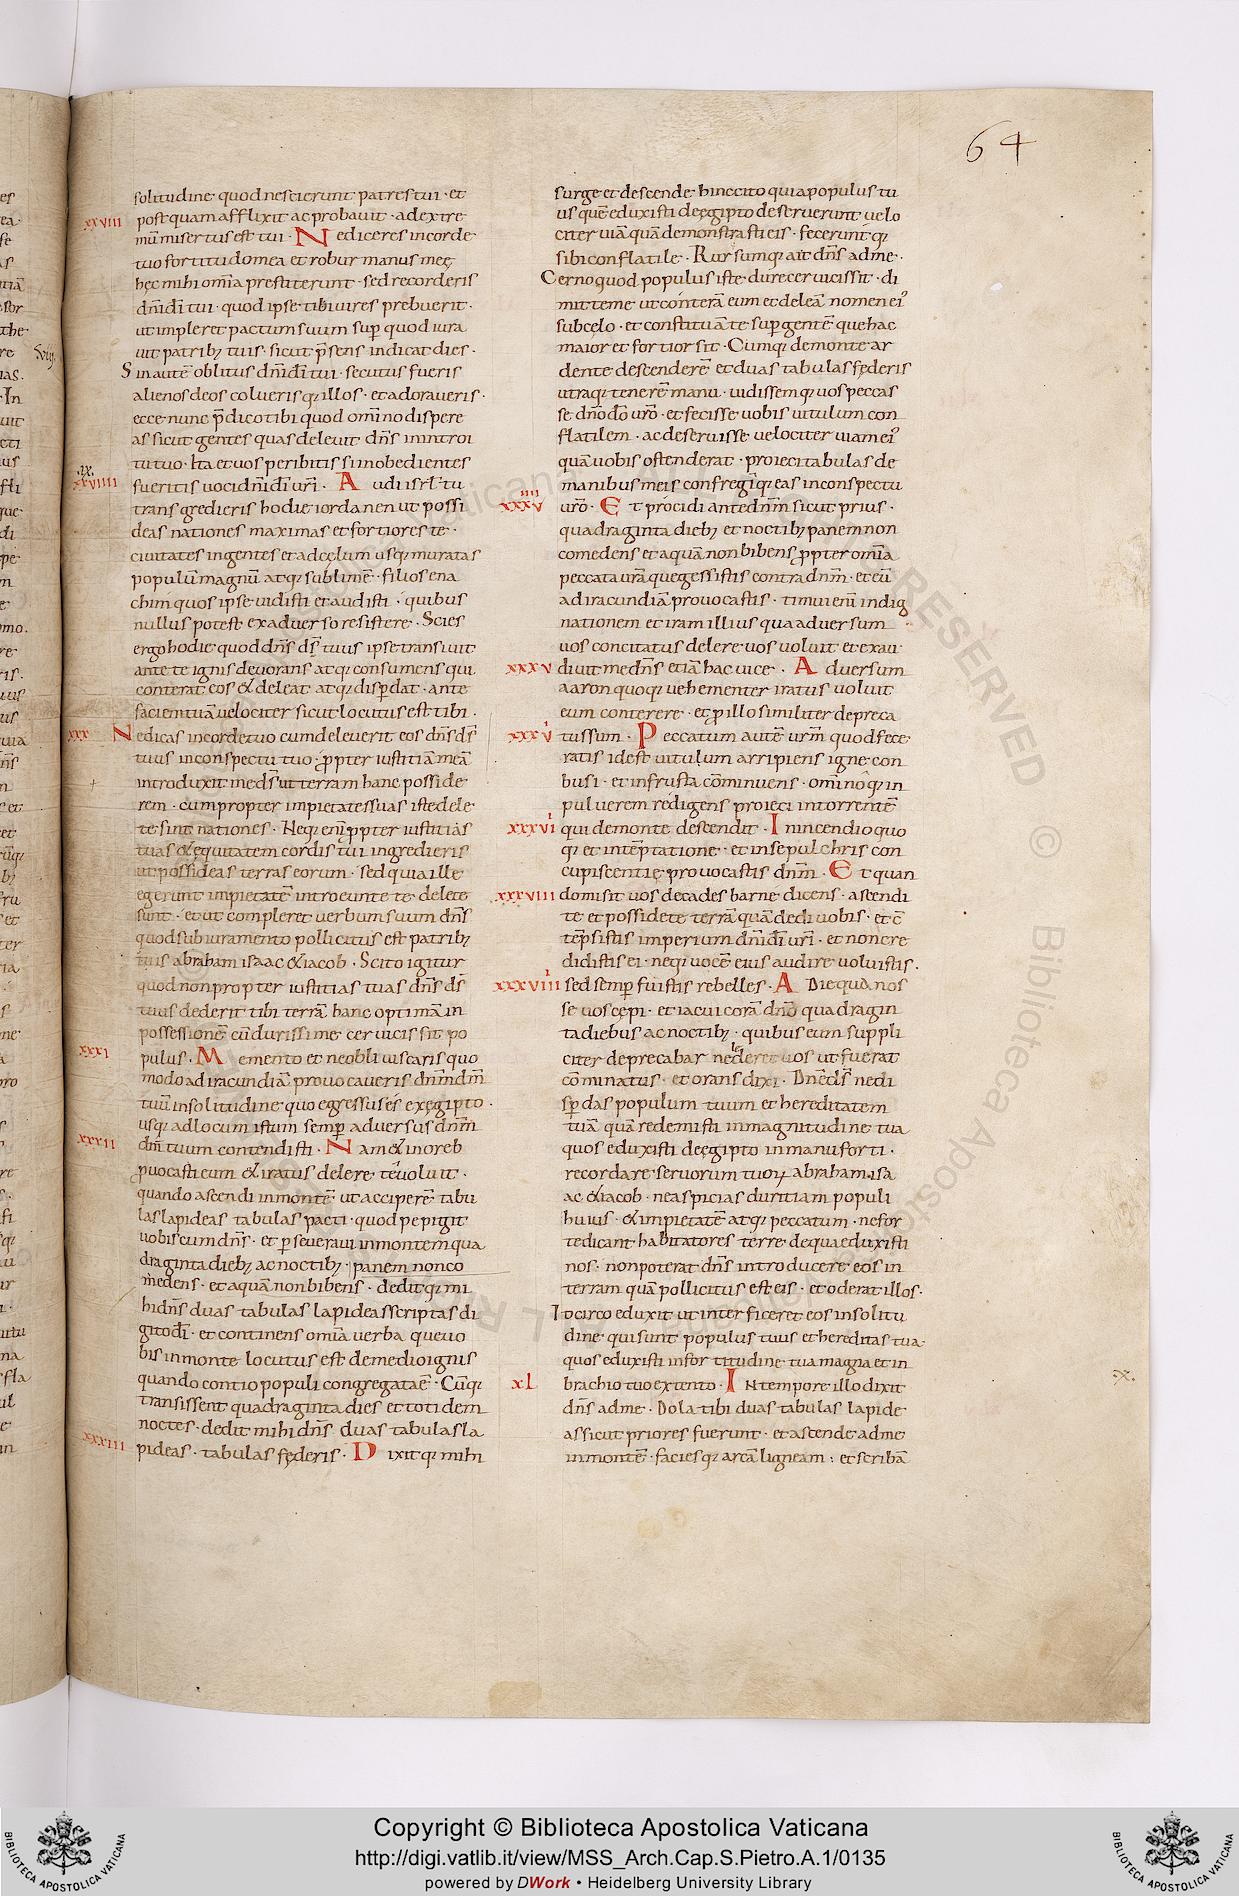 64
solitudine quod nescierunt patres tui · et
xxviii post quam afflixit ac probavit · ad extre
mū misertus est tui · Ne diceres in corde
tuo fortitudo mea et robur manus meę
hęc mihi om̄ia prestiterunt · sed recorderis
dn̄i dī tui · quod ipse tibi vires prebuerit ·
ut impleret pactum suum sup̄ quod iura
vit patribꝫ tuis · sicut p̄sens indicat dies ·
Sin autē oblitus dn̄i dī tui · secutus fueris
alienos deos colverisqꝫ illos · et adoraveris ·
ecce nunc p̄dico tibi quod om̄ino dispere
as sicut gentes quas delevit dn̄s in introi
.ix.
tu tuo · Ita et vos peribitis si inobedientes
xxviiii fueritis voci dn̄i dī vr̄i · Audi isrl̄ · tu
transgredieris hodie iordanen ut possi
deas nationes maximas et fortiores te ·
civitates ingentes et ad cęlum usqꝫ muratas
populū magnū atqꝫ sublimē · filios ena
chim quos ipse vidisti et audisti · quibus
nullus potest ex adverso resistere · Scies
ergo hodie quod dn̄s ds̄ tuus ipse transivit
ante te ignis devorans atqꝫ consumens qui
conterat eos & deleat atqꝫ disꝑdat · ante
faciem tuā velociter sicut locutus est tibi ·
xxx Ne dicas in corde tuo cum deleverit eos dn̄s ds̄
tuus in conspectu tuo · ꝓpter iustitiā meā
introduxit me ds̄ ut terram hanc posside
rem · cum propter impietates suas iste dele
te sint nationes · Neqꝫ eni ꝓpter iustitias
tuas & ęquitatem cordis tui ingredieris
ut possideas terras eorum · sed quia ille
egerunt impietatē introeunte te delete
sunt · et ut compleret verbum suum dn̄s
quod sub iuramento pollicitus est patribꝫ
tuis abraham isaac & iacob · Scito igitur
quod non propter iustitias tuas dn̄s ds̄
tuus dederit tibi terrā hanc optimā in
possessionē cū durissime cervicis sit po
xxxi pulus · Memento et ne obliviscaris quo
modo ad iracundiā provocaveris dn̄m dm̄
tuū in solitudine quo egressus es ex ęgipto ·
usqꝫ ad locum istum semꝑ adversus dn̄m
xxxii dm̄ tuum contendisti · Nam & in oreb
ꝓvocasti eum & iratus delere te voluit ·
quando ascendi in montē ut acciperē tabu
las lapideas tabulas pacti · quod pepigit
vobiscum dn̄s · et ꝑseveravi in montem qua
draginta diebꝫ ac noctibꝫ · panem non co
medens · et aquā non bibens · deditqꝫ mi
hi dn̄s duas tabulas lapideas scriptas di
gito dī · et continens om̄ia verba que vo
bis in monte locutus est de medio ignis
quando contio populi congregata ē · Cūqꝫ
transissent quadraginta dies et totidem
noctes · dedit mihi dn̄s duas tabulas la
xxxiii pideas · tabulas fęderis · Dixitqꝫ mihi
surge et descende hinc cito quia populus tu
us quē eduxisti de ęgipto deseruerunt velo
citer viā quā demonstrasti eis · feceruntqꝫ
sibi conflatile · Rursumqꝫ ait dn̄s ad me ·
Cerno quod populus iste dure cervicis sit · di
mitte me ut conterā eum et deleā nomen ei'
sub cęlo · et constituā te suꝑ gentē que hac
maior et fortior sit · Cumqꝫ de monte ar
dente descenderē et duas tabulas fęderis
utraqꝫ tenerē manu · vidissemqꝫ vos peccas
se dn̄o dō vr̄o · et fecisse vobis vitulum con
flatilem · ac deseruisse velociter viam ei'
quā vobis ostenderat · proieci tabulas de
manibus meis confregiqꝫ eas in conspectu
xxxiiii vr̄o · Et procidi ante dn̄m sicut prius ·
quadraginta diebꝫ et noctibꝫ panem non
comedens et aquā non bibens ꝓpter om̄ia
peccata vr̄a que gessistis contra dn̄m · et eū
ad iracundiā provocastis · timui eni indig
nationem et iram illius qua adversum
vos concitatus delere vos voluit et exau
xxxv divit me dn̄s etiā hac vice · Adversum
aaron quoqꝫ vehementer iratus voluit
eum conterere · et ꝓ illo similiter depreca
xxxvi tus sum · Peccatum autē vr̄m quod fece
ratis id est vitulum arripiens igne con
busi · et in frusta cōminuens · om̄inoqꝫ in
pulverem redigens proieci in torrentē
xxxvii qui de monte descendit · In incendio quo
qꝫ et in tēptatione · et in sepulchris con
cupiscentię provocastis dn̄m · Et quan
xxxviii do misit vos de cades barne dicens · ascendi
te et possidete terrā quā dedi vobis · et cō
tēpsistis imperium dn̄i dī vr̄i · et non cre
didistis ei · neqꝫ vocē eius audire voluistis ·
xxxviiii sed semꝑ fuistis rebelles · A die qua nos
se vos cępi · et iacui corā dn̄o quadragin
ta diebus ac noctibꝫ · quibus eum suppli
citer deprecabar ne deleret vos ut fuerat
cōminatus · et orans dixi · Dn̄e ds̄ ne di
sꝑdas populum tuum et hereditatem
tuā quā redemisti in magnitudine tua
quos eduxisti de ęgipto in manu forti ·
recordare servorum tuoꝝ abraham isa
ac & iacob · ne aspicias duritiam populi
huius · & impietatē atqꝫ peccatum · ne for
te dicant habitatores terre de qua eduxisti
nos · non poterat dn̄s introducere eos in
terram quā pollicitus est eis · et oderat illos ·
Idcirco eduxit ut interficeret eos in solitu
dine · qui sunt populus tuus et hereditas tua ·
quos eduxisti in fortitudine tua magna et in
xl brachio tuo extento · In tempore illo dixit .x.
dn̄s ad me · Dola tibi duas tabulas lapide
as sicut priores fuerunt · et ascende ad me
in montē · faciesqꝫ arcā ligneam · et scribā
Copyright © Biblioteca Apostolica Vaticana
http://digi.vatlib.it/view/MSS_Arch.Cap.S.Pietro.A.1/0135
powered by DWork • Heidelberg University Library
BIBLIOTECA APOSTOLICA VATICANA
BIBLIOTECA APOSTOLICA VATICANA